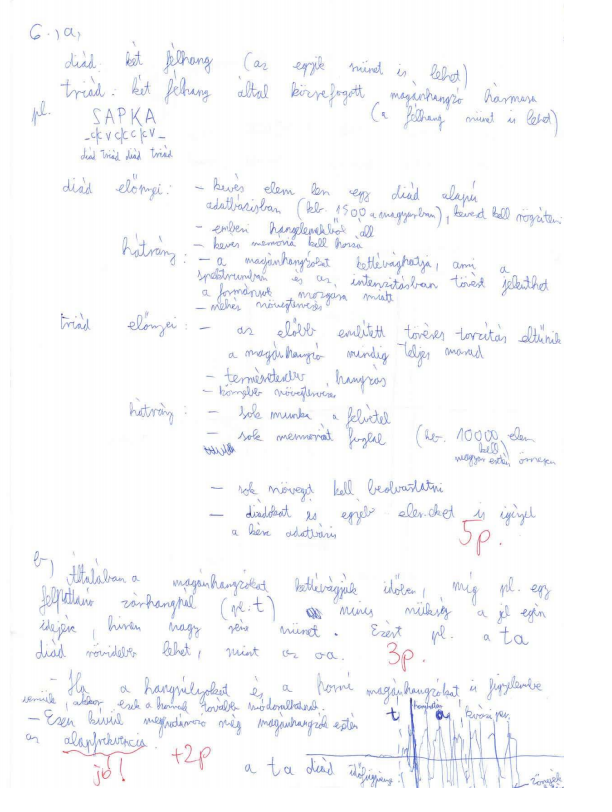 6., a,
diád: két félhang (az egyik szünet is lehet)
triád: két félhang által közrefogott magánhangzó hármasa
pl. SAPKA (a félhang szünet is lehet)
-c|c v c|c c|c v -
diád triád diád triád
diád előnyei: - kevés elem van egy diád alapú
adatbázisban (kb. 1500 a magyarban), keveset kell rögzíteni
- emberi hangelemekből áll
- kevés memória kell hozzá
hátrány: - a magánhangzókat kettévághatja, ami a
spektrumban és az intenzitásban törést jelenthet
a formánsok mozgása miatt
- nehéz
triád előnyei: - az előbb említett töréses torzítás eltűnik
a magánhangzó mindig teljes marad
- természetesebb hangzás
- könnyebb
hátrány: - sok munka a felvétel
- sok memóriát foglal (kb. 10000 elem
kell
magyar esetén összesen
- sok szöveget kell beolvastatni
- diádokat és egyéb elemeket is igényel
a kész adatbázis
5p.
b, Általában a magánhangzókat kettévágjuk időben, míg pl. egy
felpattanó zárhangnál (pl. t) nincs szükség a jel egész
idejére, hiszen nagy része szünet. Ezért pl. a ta
diád rövidebb lehet, mint az oa. 3p.
- Ha a hangsúlyokat és a hosszú magánhangzókat is figyelembe
vesszük, akkor ezek a hosszak tovább módosulhatnak.
- Ezen kívül meghatározó még magánhangzók esetén
az alapfrekvencia.
jó! +2p
t a
a ta diád időfüggvénye:
zöngés